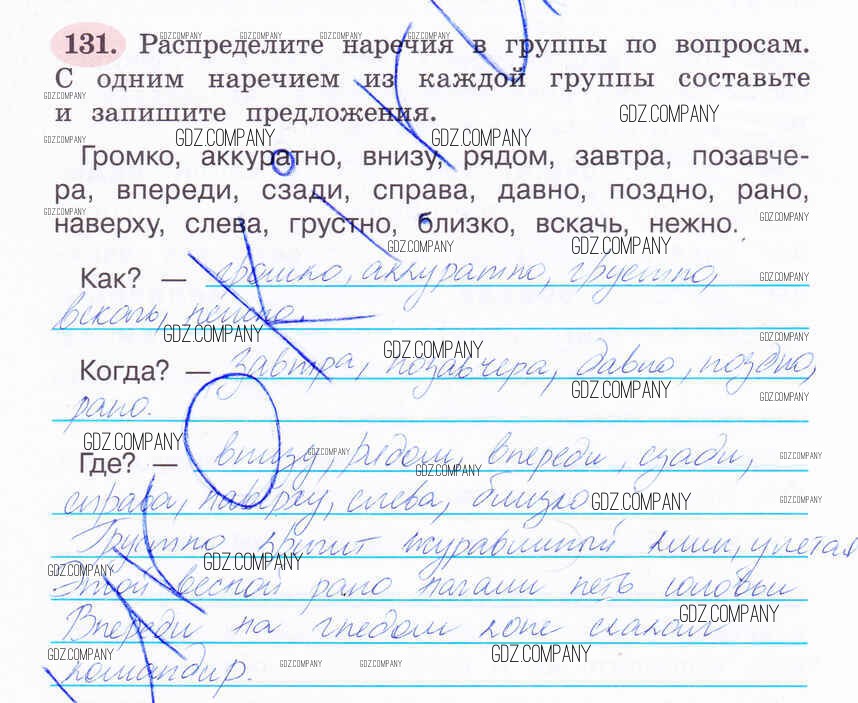 131. Распределите наречия в группы по вопросам.
С одним наречием из каждой группы составьте
и запишите предложения.
Громко, аккуратно, внизу, рядом, завтра, позавче-
ра, впереди, сзади, справа, давно, поздно, рано,
наверху, слева, грустно, близко, вскачь, нежно.
Как? — громко, аккуратно, грустно,
вскачь, нежно.
Когда? — завтра, позавчера, давно, поздно,
рано.
Где? — внизу, рядом, впереди, сзади,
справа, наверху, слева, близко
Грустно звучит журавлиный клич, улетая
Этой весной рано начали петь соловьи
Впереди на гнедом коне скакал
командир.
GDZ.COMPANY